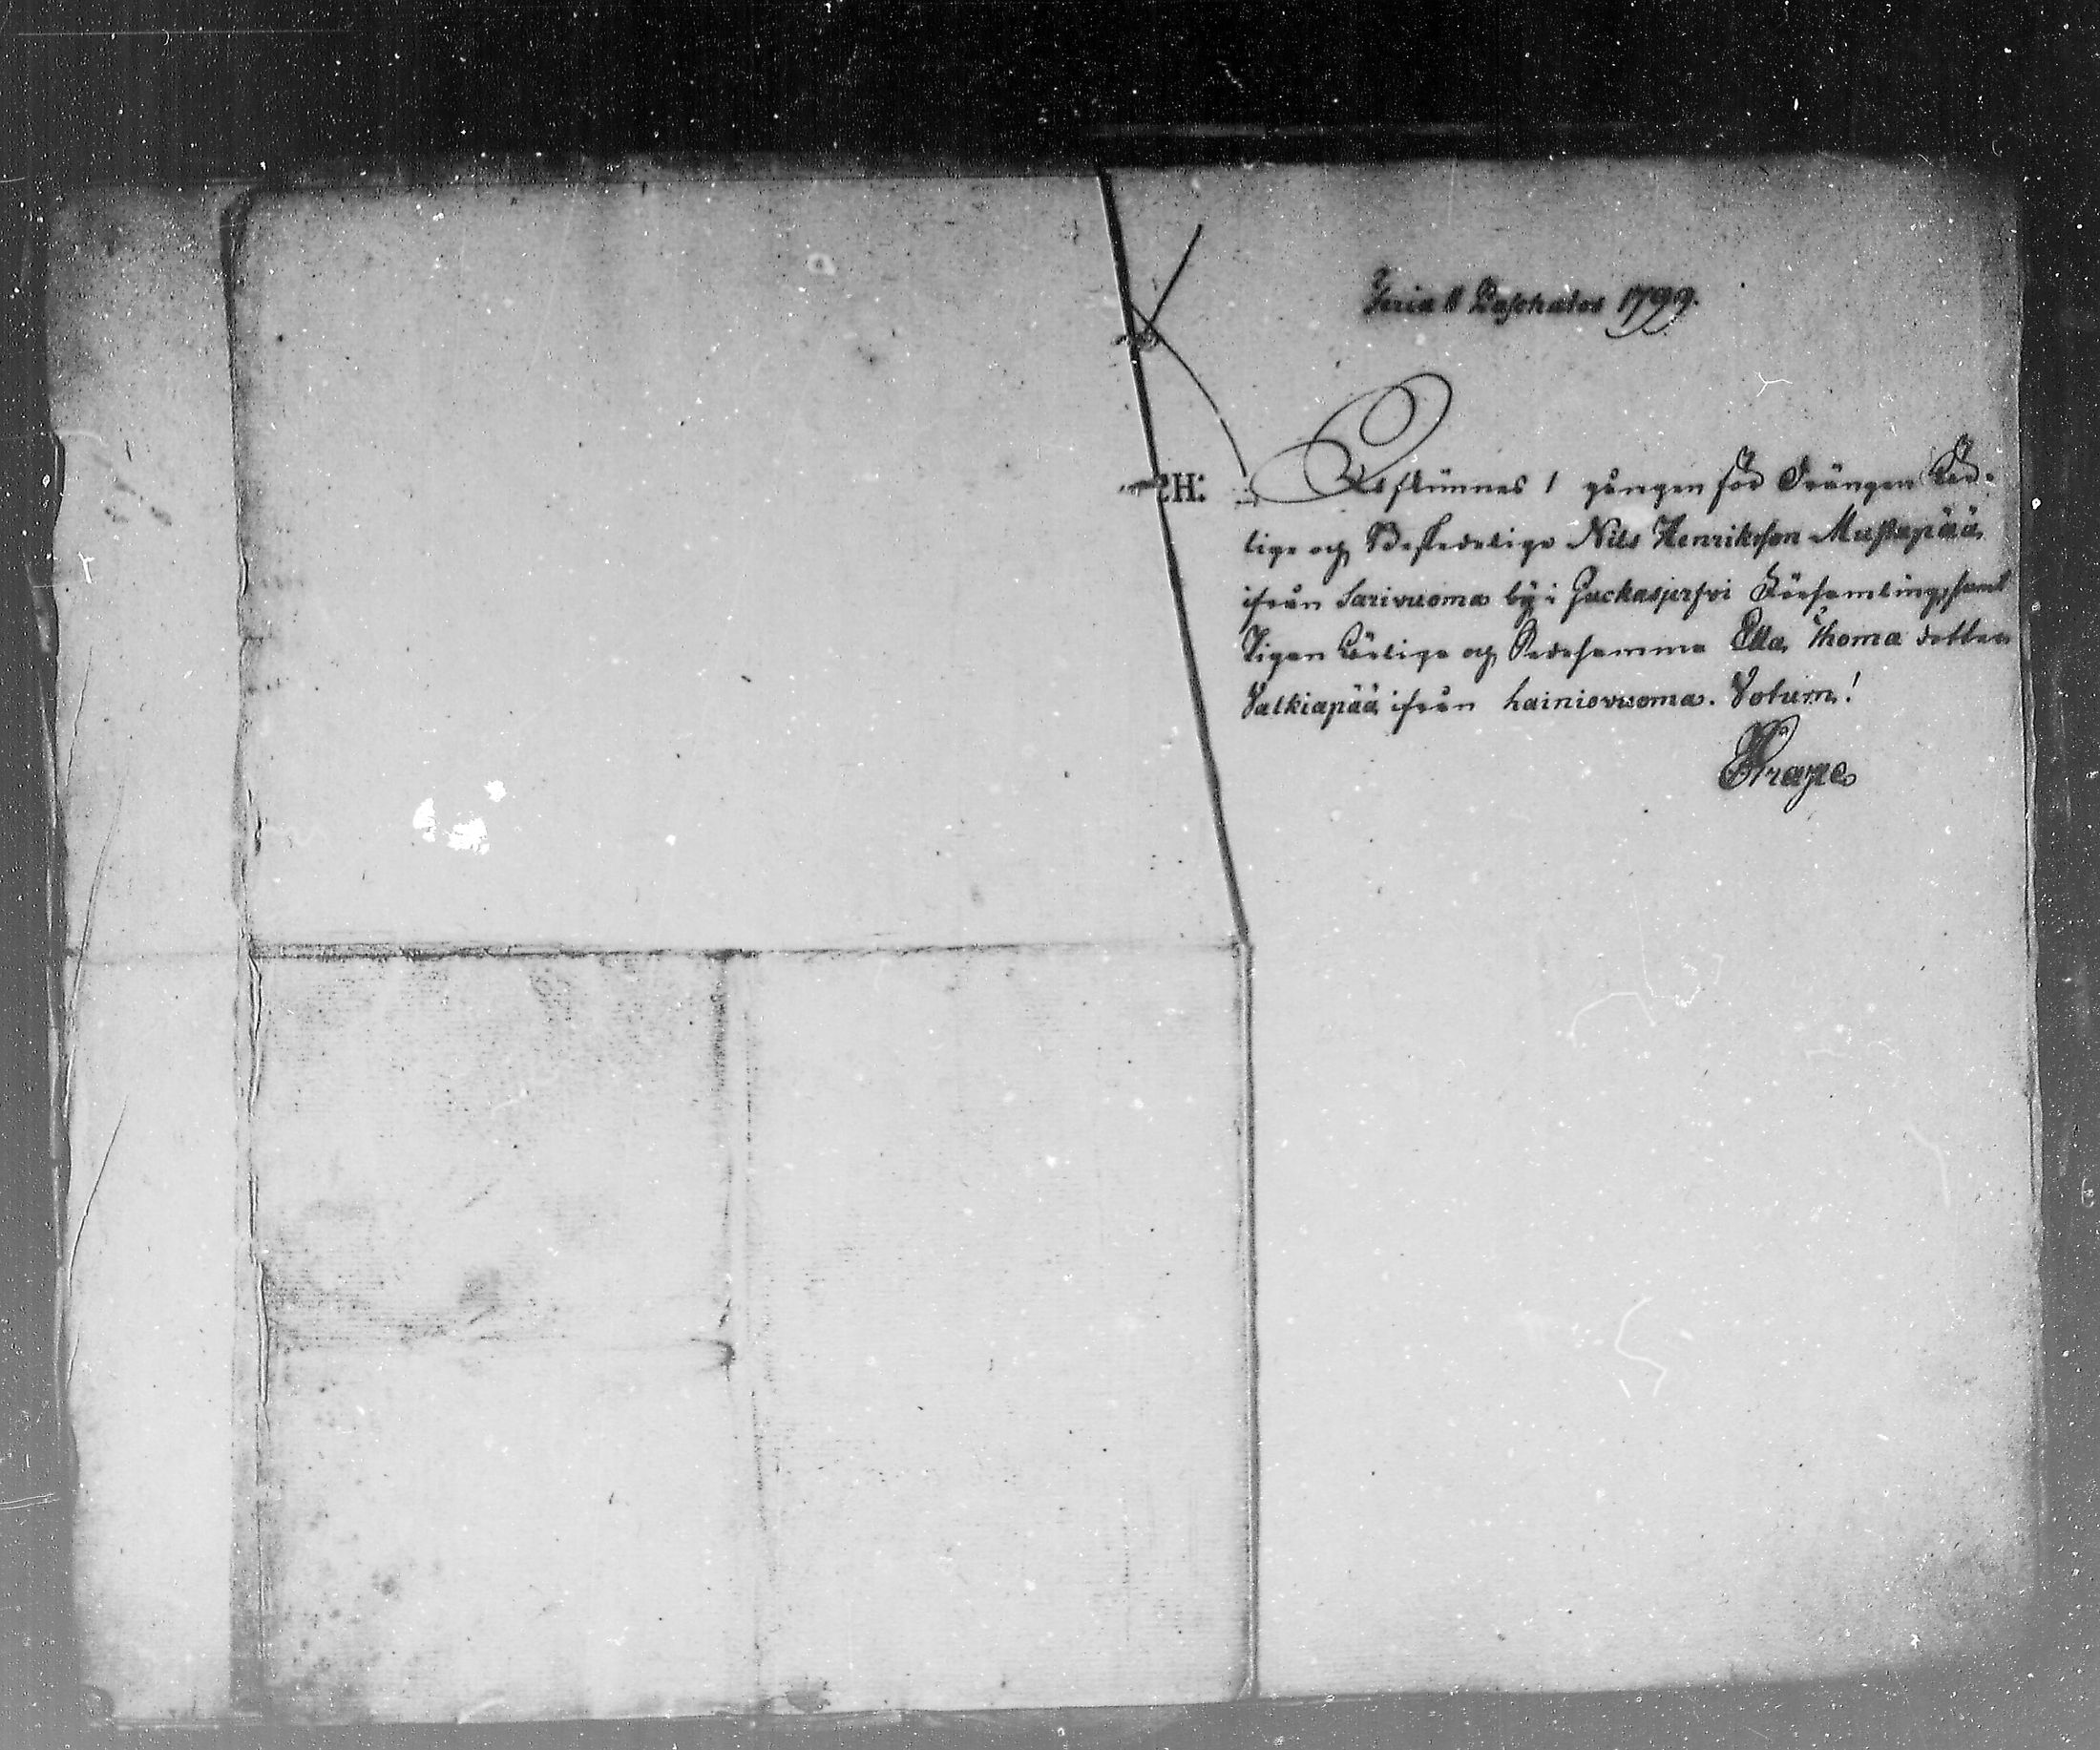 Feria II Paschatos 1799.
2H:
Afkunnes 1 gången för Drängen Ree-
lige och Beskedelige Nils Henriksson Mustapää
ifrån Sarivuoma by i Juckasjerfvi Församling, samt
Pigan Ärlige och Dydesamma Ella Thoma dotter
Valkiapää ifrån Lainiovuoma. Votum!